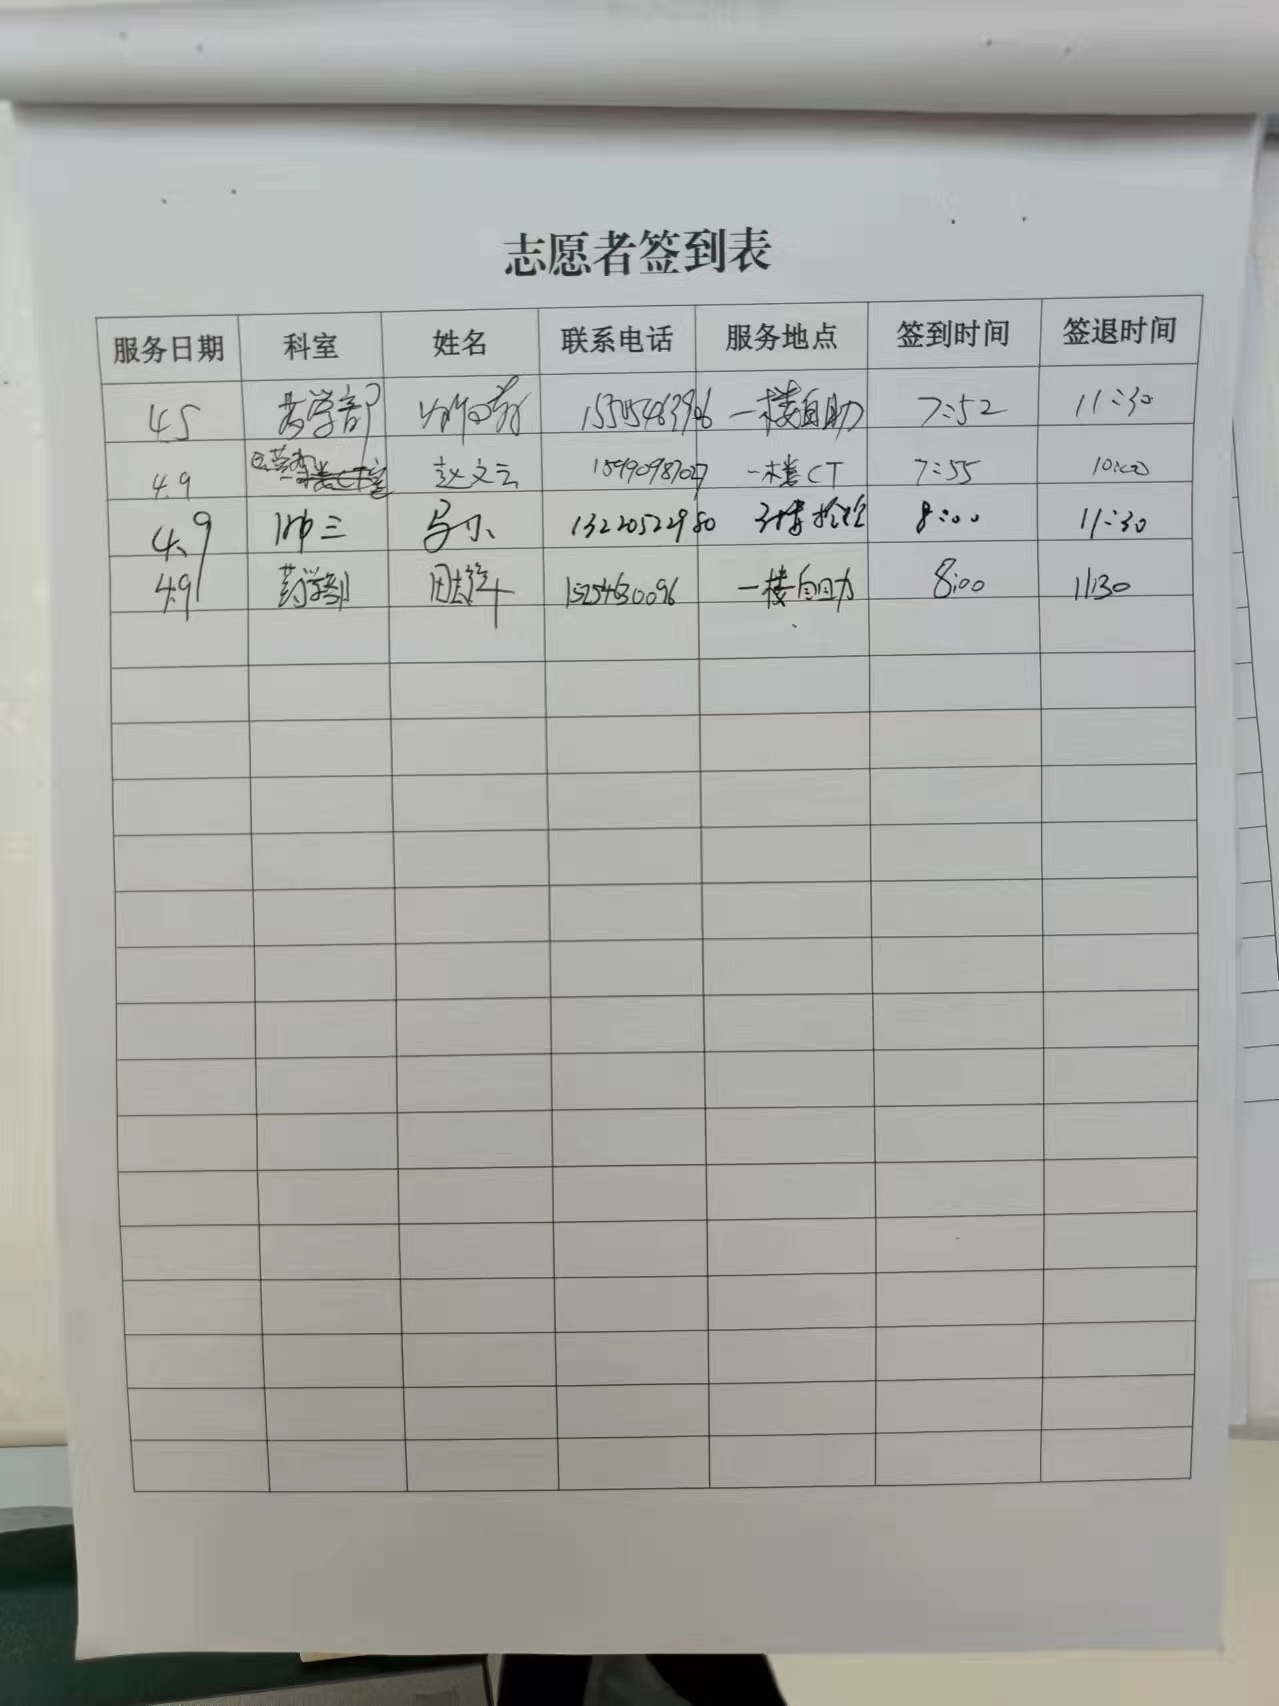 志愿者签到表
服务日期 科室 姓名 联系电话 服务地点 签到时间 签退时间
4.5 药学部 一楼自助 7:52 11:30
4.9 赵文云 一楼CT 7:55 10:00
4.9 13220522980 8:00 11:30
4.9 药学部 15254630096 一楼自助 8:00 11:30